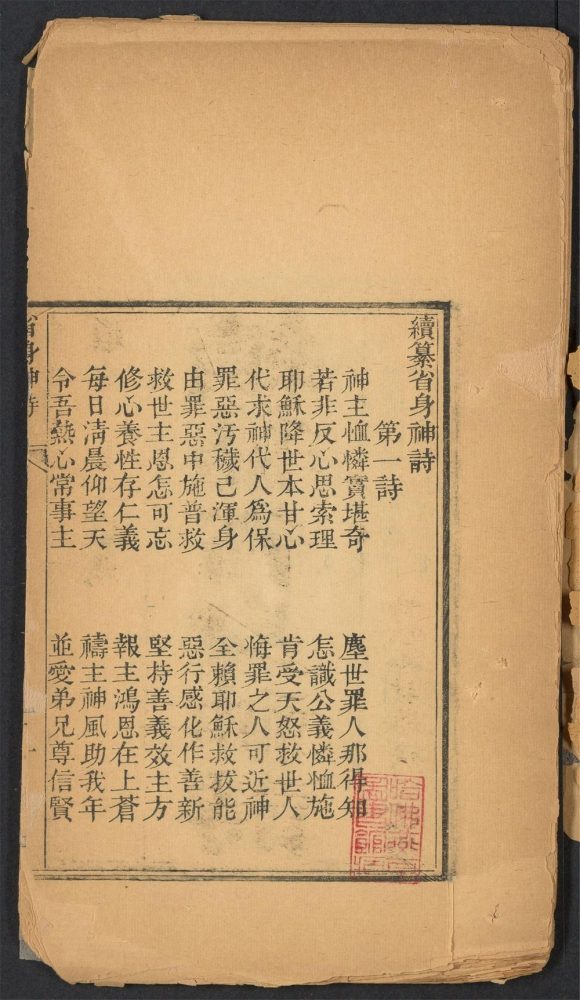 續纂省身神詩
第一詩
神主恤憐實堪奇 塵世罪人那得知
若非反心思索理 怎識公義憐恤施
耶穌降世本甘心 肯受天怒救世人
代求神代人爲保 悔罪之人可近神
罪惡汚穢己渾身 全賴耶穌救拔能
由罪惡中施普救 惡行感化作善新
救世主恩怎可忘 堅持善義效主方
修心養性存仁義 報主鴻恩在上蒼
每日淸晨仰望天 禱主神風助我年
令吾熱心常事主 並愛弟兄尊信賢
省身神詩